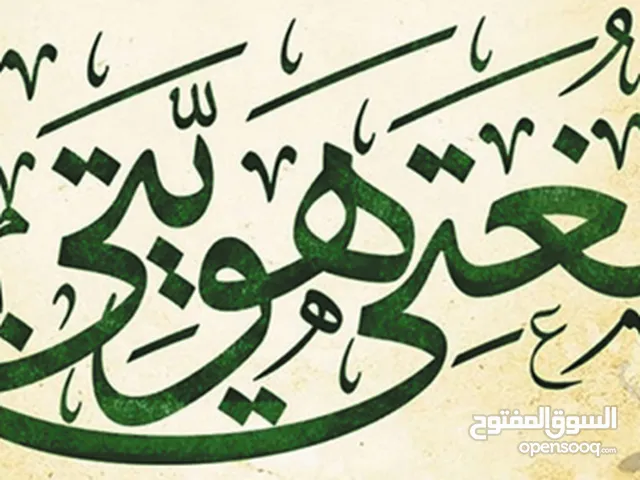 لُغَتِي هُوِيَّتِي
السوق المفتوح
opensooq.com